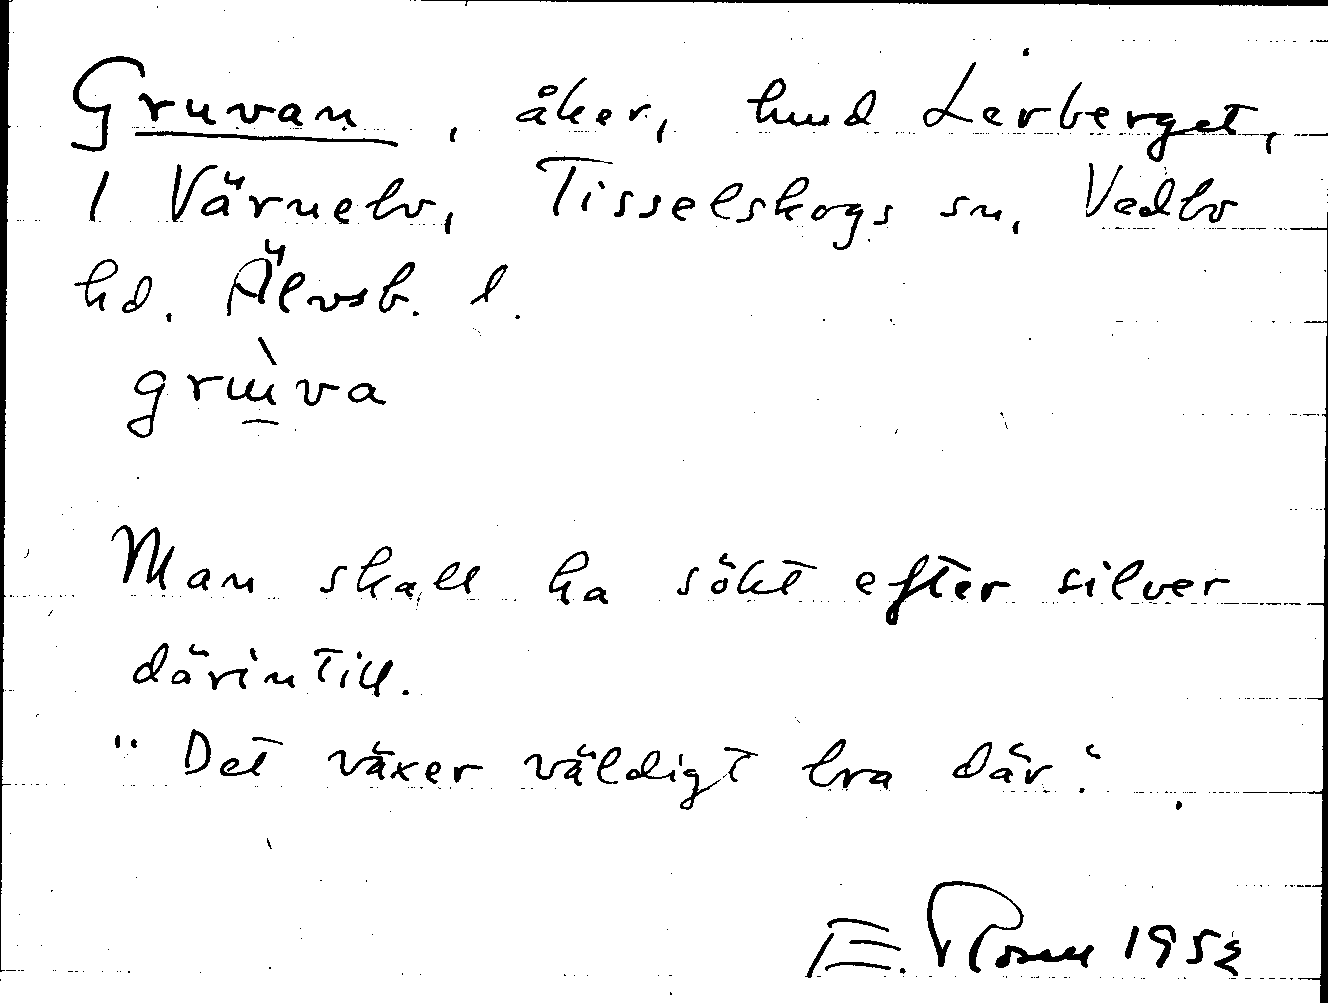 Gruvan, åker, hmd Lerberget,
1 Värnebo, Tisselskogs sn, Vedbo
hd. Älvsb. l.
grùva
Man skall ha sökt efter silver
därintill.
"Det växer väldigt bra där."
E. Rosell 1952